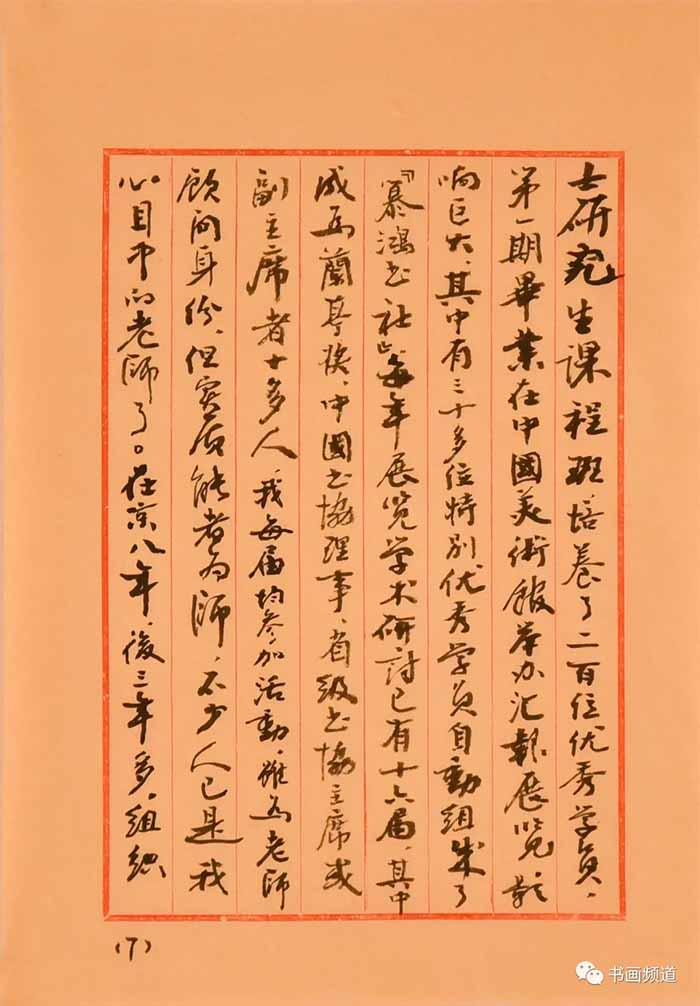 士研究生課程班培養了二百位优秀学員，
第一期畢業在中國美術館举办汇報展览影
响巨大，其中有三十多位特别优秀学員自動組成了
『慕鴻书社』每年展览学术研討已有十六届，其中
成为蘭亭奖、中國书協理事、省級书協主席或
副主席者十多人，我每届均参加活動，雖为老師
顾问身份，但实质能者为師，不少人已是我
心目中的老師了。在京八年，後三年多，組織
(7)
书画频道